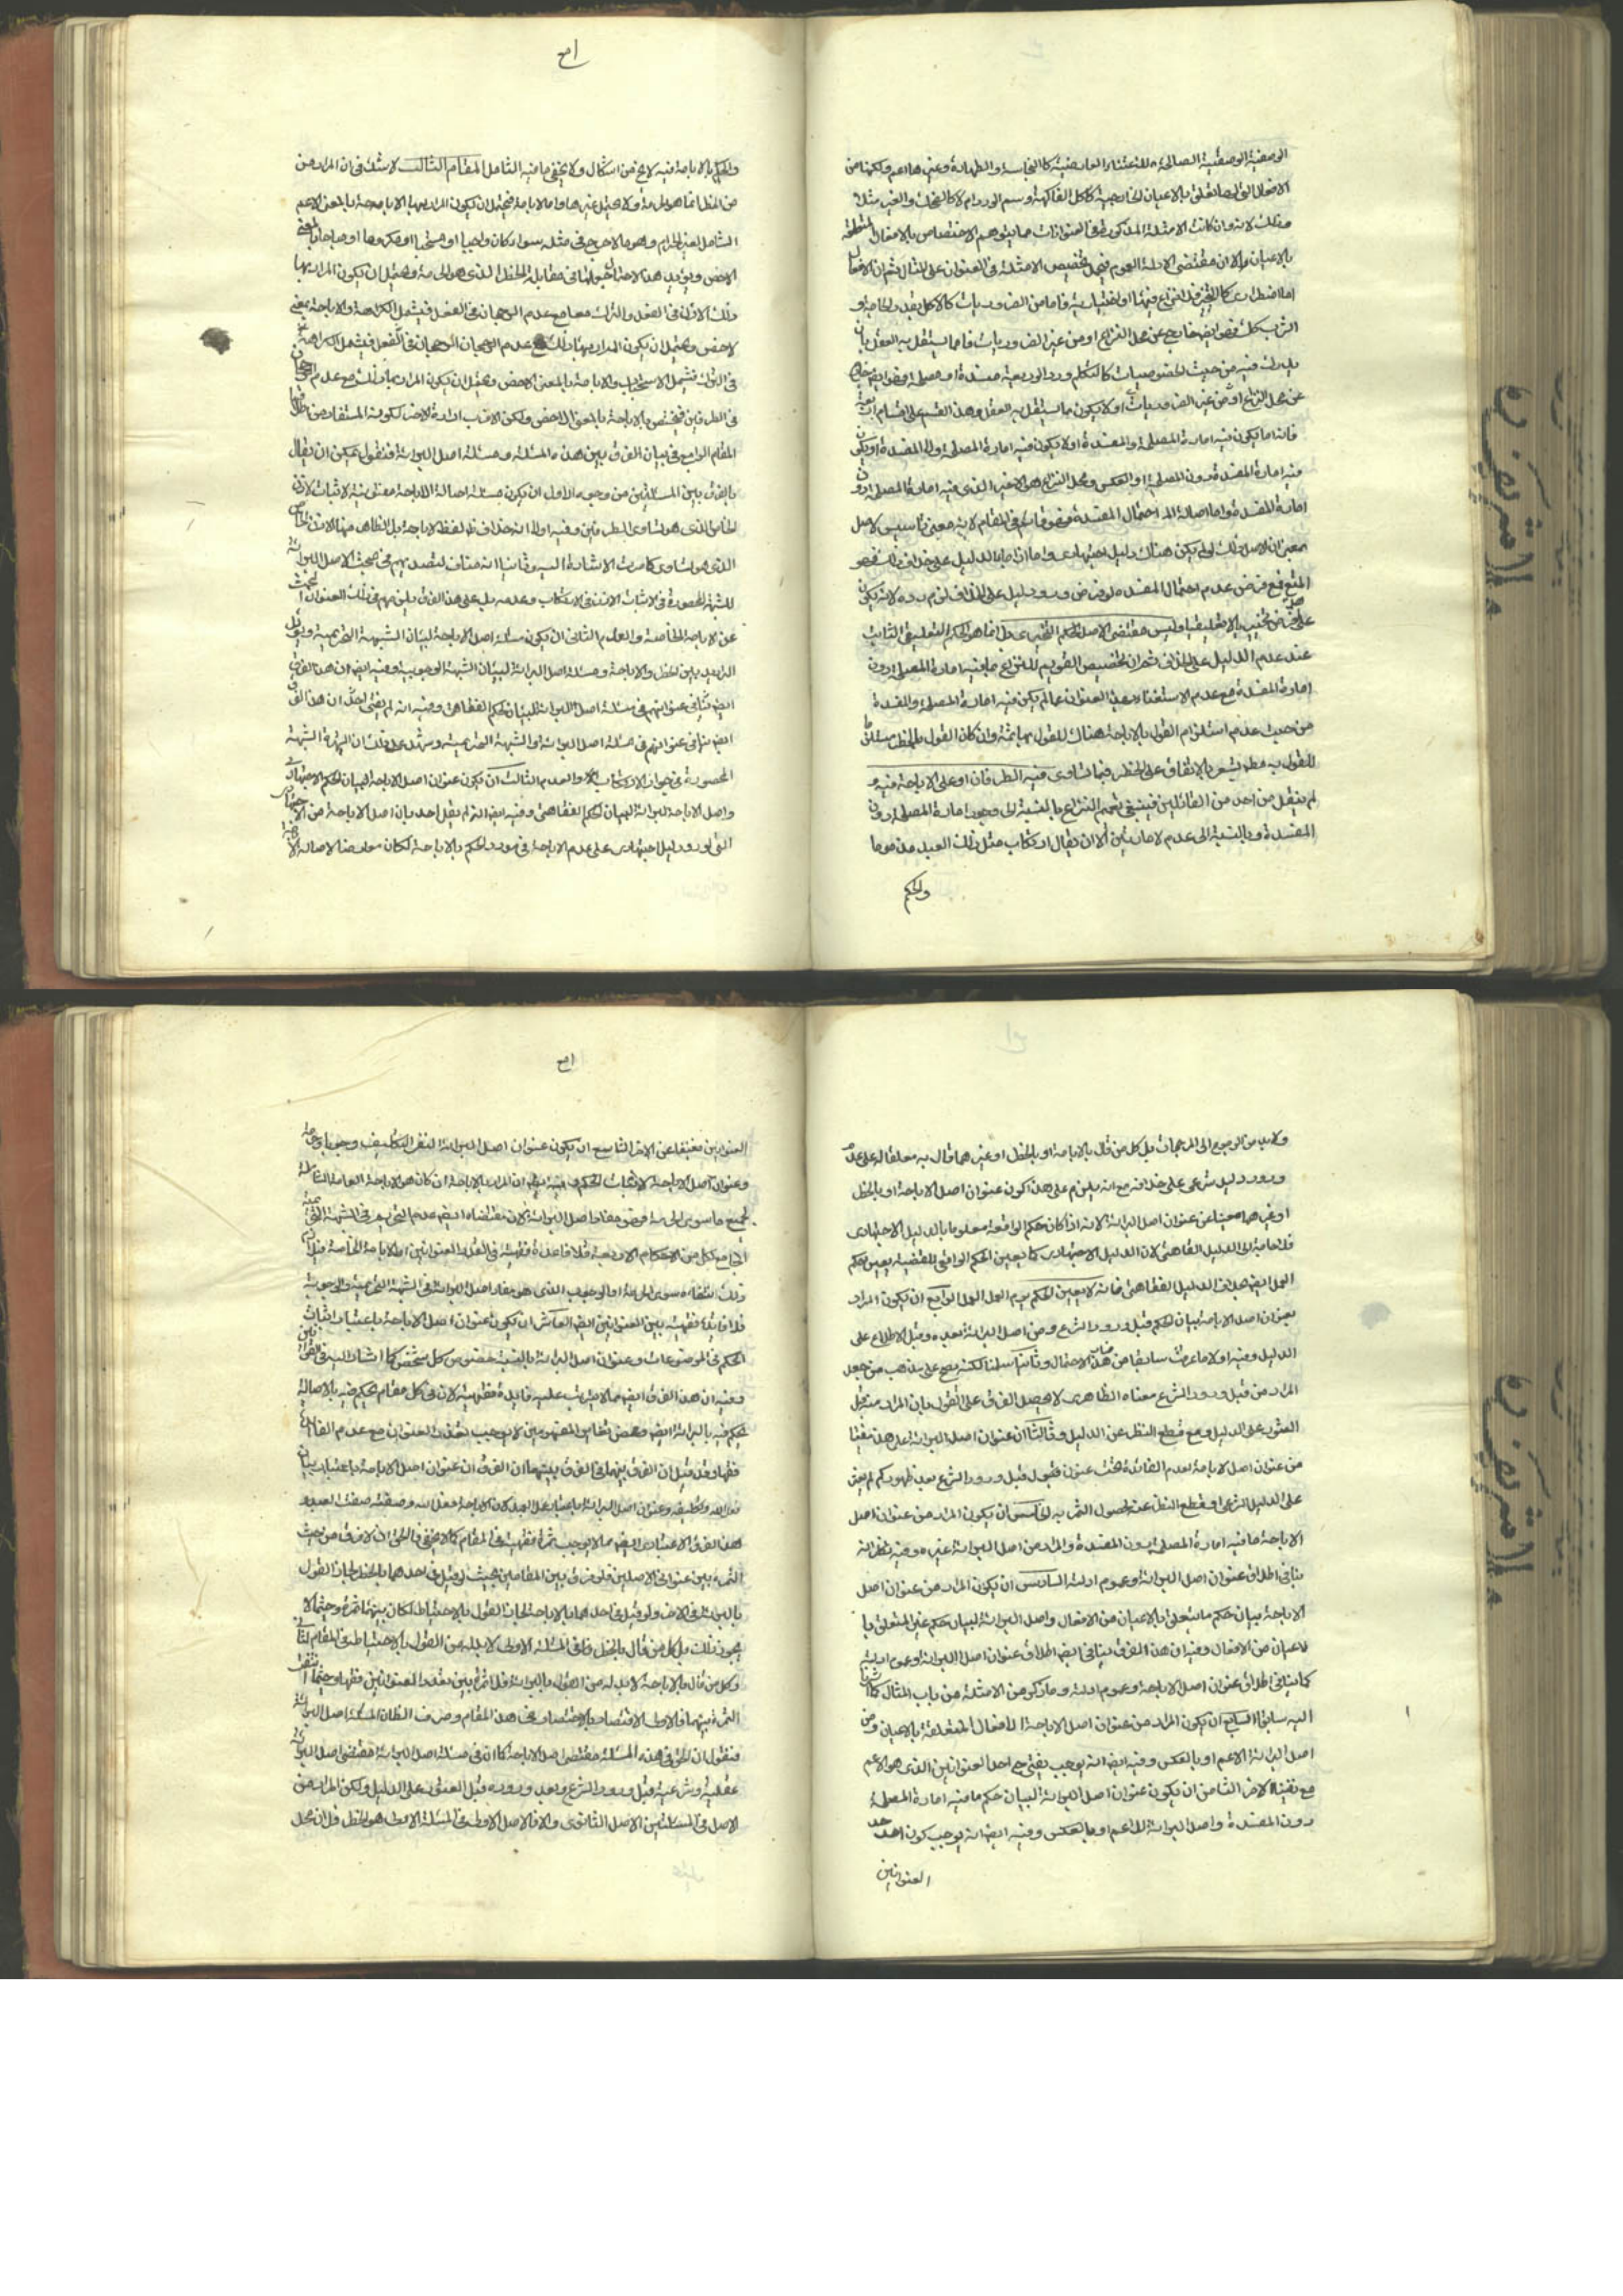 الوصفية الوصفية الصالحة للاعتناء العارضية كالنجاسة والطهارة وغيرها اعم ولكنها من
الافعال التي لها تعلق بالاعيان الخارجية كاكل الفاكهة وشم الورد ام لا كالنخل والغير مثلا
وذلك لانه وان كانت الامثلة المذكورة في العنوانات مما يتوهم الاختصاص بالافعال المتعلقة
بالاعيان الا ان مقتضى الادلة العموم فيحمل تخصيص الامثلة في العنوان على المثال ثم ان الافعال
اما اضطراري كالتحيز فلا نزاع فيها او اختيارية فاما من الضروريات كالاكل بقدر الحاجة و
الشرب كك فهو ايضا خارج عن محل النزاع او من غير الضروريات فاما يستقل به العقل بان
يدرك فيه من حيث الخصوصيات كالتكلم ورد الوديعة مفسدة او مصلحة فهو ايضا خارج
عن محل النزاع او من غير الضروريات او لا يكون مما يستقل به العقل وهذا القسم على اقسام اربعة
فانه اما يكون فيه امارة المصلحة والمفسدة او لا يكون فيه امارة المصلحة ولا المفسدة او يكون
فيه امارة المفسدة دون المصلحة او بالعكس ومحل النزاع هو الاخير الذي فيه امارة المصلحة دون
امارة المفسدة واما اصالة احتمال المفسدة فهو في المقام لانه معنى تاسيس الاصل
بمعنى ان الاصل ذلك لو لم يكن هناك دليل اجتهادي واما اذا جاء الدليل على خلاف ذلك فهو
المتبع فمع فرض عدم احتمال المفسدة لو فرض ورود دليل على الخلاف لزم رده لانه يكون
على فرض تحقيقيا لا تعليقيا وليس مقتضى الاصل الحكم التنجيزي بل انما هو الحكم التعليقي الثابت
عند عدم الدليل على الخلاف ثم ان تخصيص القوم للنزاع بما فيه امارة المصلحة دون
امارة المفسدة مع عدم الاستغناء بهذا العنوان عما لم يكن فيه امارة المصلحة والمفسدة
من حيث عدم استلزام القول بالاباحة هناك للقول بها ثمة وان كان القول بالحظر مستلزما
للقول به يشعر بالاتفاق على الحظر فيما تساوى فيه الطرفان او على الاباحة فيه و
لم ينقل من احد من القائلين فينبغي تعميم النزاع بالنسبة الى وجود امارة المصلحة دون
المفسدة وبالنسبة الى عدم الامارتين الا ان يقال ارتكاب مثل ذلك العبد مذموما
والحكم
والحكم بالاباحة فيه لا يخ من اشكال ولا يخفى ما فيه التامل المقام الثالث لا شك في ان المراد من
من الحظر انما هو الحرمة ولا يحتمل غيرها واما الاباحة فيحتمل ان يكون المراد بها الاباحة بالمعنى الاعم
الشامل لغير الحرام وهو ما لا حرج في مثله سواء كان واجبا او مستحبا او مكروها او مباحا بالمعنى
الاخص ويؤيد هذا الاحتمال جعلها في مقابلة الحظر الذي هو الحرمة ويحتمل ان يكون المراد بها
ذلك الاذن في الفعل والترك معا مع عدم الرجحان في الفعل فيشمل الكراهة والاباحة بمعنى
الاخص ويحتمل ان يكون المراد بها ذلك مع عدم الرجحان في الفعل فيشمل الكراهة
في الترك فيشمل الاستحباب والاباحة بالمعنى الاخص ويحتمل ان يكون المراد بها ذلك مع عدم الرجحان
في الطرفين فيختص بالاباحة بالمعنى الاخص ولكن الاقرب ارادة الاخير لكونه المستفاد من اطلاقها
المقام الرابع في بيان الفرق بين هذه المسئلة ومسئلة اصل البرائة فنقول يمكن ان يقال
بالفرق بين المسئلتين من وجوه الاول ان يكون مسئلة اصالة الاباحة معنونة لاثبات الاذن
الخاص الذي هو تساوي الطرفين وفيه اولا انه خلاف ظ لفظ الاباحة بل الظاهر منها الاذن الخاص
الذي هو تساوي كما مرت الاشارة اليه وثانيا انه مناف لتصديهم في مبحث الاصل البرائة
للشبهة المحصورة في الاثبات الاذن في الارتكاب وعدمه بل على هذا الفرق يلزمهم في ذلك العنوان البحث
عن الاباحة الخاصة والعام الثاني ان يكون مسئلة اصل الاباحة لبيان الشبهة التحريمية و
الترديد بين الحظر والاباحة ومسئلة اصل البرائة لبيان الشبهة الوجوبية وفيه ايضا ان هذا الفرق
ايضا ينافي عنوانهم في مسئلة اصل البرائة لبيان الحكم الفقاهي وفيه انه لم يفت احد ان هذا الفرق
ايضا ينافي عنوانهم في مسئلة اصل البرائة الشبهة التحريمية ويشهد على ذلك ان الشبهة
المحصورة في جواز الارتكاب والعدم الثالث ان يكون عنوان اصل الاباحة لبيان الحكم الاجتهادي
واصل الاباحة البرائة لبيان الحكم الفقاهي وفيه ايضا انه لم يقل احد بان اصل الاباحة من الاجتهادية
التي لو ورد دليل اجتهادي على عدم الاباحة في مورد الحكم بالاباحة لكان معارضا لاصالة الاباحة
ولا بد من الرجوع الى المرجحات بل كل من قال بالاباحة او بالحظر او غيرهما قال به معلقا له على عدم
ورود دليل شرعي على خلافه مع انه يلزم على هذا كون عنوان اصل الاباحة او بالحظر
او غيرهما مغنيا عن عنوان اصل البرائة لانه اذا كان حكم الواقعة معلوما بالدليل الاجتهادي
فلا حاجة الى الدليل الفقاهي لان الدليل الاجتهادي كما يعين الحكم الواقعي للقضية يعين حكم
العمل ايضا بخلاف الدليل الفقاهي فانه لا يعين الحكم يوم العمل العمل الرابع ان يكون المراد
بعنوان اصل الاباحة بيان الحكم قبل ورود الشرع ومن اصل البرائة بعده وقبل الاطلاع على
الدليل وفيه اولا ما عرفت سابقا من هذا الاحتمال وثانيا سلمنا لكنه يصح على مذهب من جعل
المراد من قبل ورود الشرع معناه الظاهري لا يحصل الفرق على القول بان المراد منه قبل
العثور على الدليل ومع قطع النظر عن الدليل وثالثا ان عنوان اصل البرائة على هذا مغنيا
من عنوان اصل الاباحة لعدم الفائدة تحت عنوان قبول قبل ورود الشرع بعد ظهوركم لم يعثر
على الدليل الشرعي او قطع النظر عنه لحصول الثمرة به الخامس ان يكون المراد من عنوان اصل
الاباحة ما فيه امارة المصلحة دون المفسدة والمراد من اصل البرائة غيره وفيه نظر لانه
ينافي اطلاق عنوان اصل البرائة وعموم ادلته السادس ان يكون المراد من عنوان اصل
الاباحة بيان حكم ما يتعلق بالاعيان من الافعال واصل البرائة لبيان حكم غير المتعلق با
لاعيان من الافعال وفيه ان هذا الفرق ينافي ايضا اطلاق عنوان اصل البرائة وعموم ادلته
كما ينافي اطلاق عنوان اصل الاباحة وعموم ادلته وما ذكر من الامثلة من باب المثال كما اشرنا
اليه سابقا السابع ان يكون المراد من عنوان اصل الاباحة الافعال المتعلقة بالاعيان ومن
اصل البرائة الاعم او بالعكس وفيه ايضا انه يوجب يغني احد العنوانين الذي هو الاعم
مع الاخر الثامن ان يكون عنوان اصل البرائة لبيان حكم ما فيه امارة المصلحة
دون المفسدة واصل البرائة للاعم او بالعكس وفيه ايضا انه يوجب كون احد
العنوانين
العنوانين مغنيا عن الاخر التاسع ان يكون عنوان اصل البرائة لنفي التكليف وجوبا وحرمة
وعنوان اصل الاباحة لاثبات الحكم وفيه ايضا ان المراد بالاباحة ان كان هو الاباحة العامة الشاملة
لجميع ما سوى الحرمة فهو مفاد اصل البرائة لان مقتضاه ايضا عدم التحريم في الشبهة التحريمية
الجامع مع كل من الاحكام الاربعة فلا فائدة فقهية في تعدد العنوانين او الاباحة الخاصة
وذلك انتفاء سوى الحرمة او الوجوب الذي هو مفاد اصل البرائة في الشبهة التحريمية والوجوبية
فلا فائدة فقهية بين العنوانين ايضا العاشر ان يكون عنوان اصل الاباحة باعتبار اثبات
الحكم في الموضوعات وعنوان اصل البرائة بالنسبة خصوص كل شخص كما اشار اليه في القوانين
وفيه ان هذا الفرق ايضا مما لا يترتب عليه فائدة فقهية لان في كل مقام يحكم فيه بالاصالة
يحكم فيه بالبرائة ايضا ومحض تغاير المفهومين لا يوجب تعدد العنوان مع عدم الفائدة
فقها وقد قيل ان الفرق بينهما في الفرق بينهما ان الفرق ان عنوان اصل الاباحة باعتبار بيان
فعل الله وتكليفه وعنوان اصل البرائة باعتبار عمل العبد لان الاباحة فعل الله وصفته صفة العبد و
هذا الفرق الاعتباري ايضا مما لا يوجب ثمرة فقهية في المقام كما لا يخفى فالحق ان لا فرق من حيث
الثمرة بين عنواني الاصلين فلو فرق بين المقامين بحيث لو قيل في احدهما بالحظر لجاز القول
بالبرائة في الاخر ولو قيل في احدهما بالاباحة لجاز القول بالاحتياط لكان بينهما ثمرة وحيثما لا
يجوز ذلك بل كل من قال بالحظر في المسئلة الاولى لا بد له من القول بالاحتياط في المقام الثاني
وكل من قال بالاباحة لا بد له من القول بالبرائة فلا ثمرة بين تعدد العنوانين فقها وحيثما انتفت
الثمرة بينهما فالاولى الاقتصار بالاختصار في هذا المقام وصرف النظر الى المسئلة اصل البرائة
فنقول ان الحق في هذه المسئلة مقتضى اصل الاباحة كما ان في مسئلة اصل البرائة مقتضى اصل البرائة
عقلية وشرعية قبل ورود الشرع وبعد وروده قبل العثور على الدليل ولكن المراد من
الاصل في المسئلتين الاصل الثانوي والا فالاصل الاولى في المسئلة الاولى هو الحظر قبل ان محل